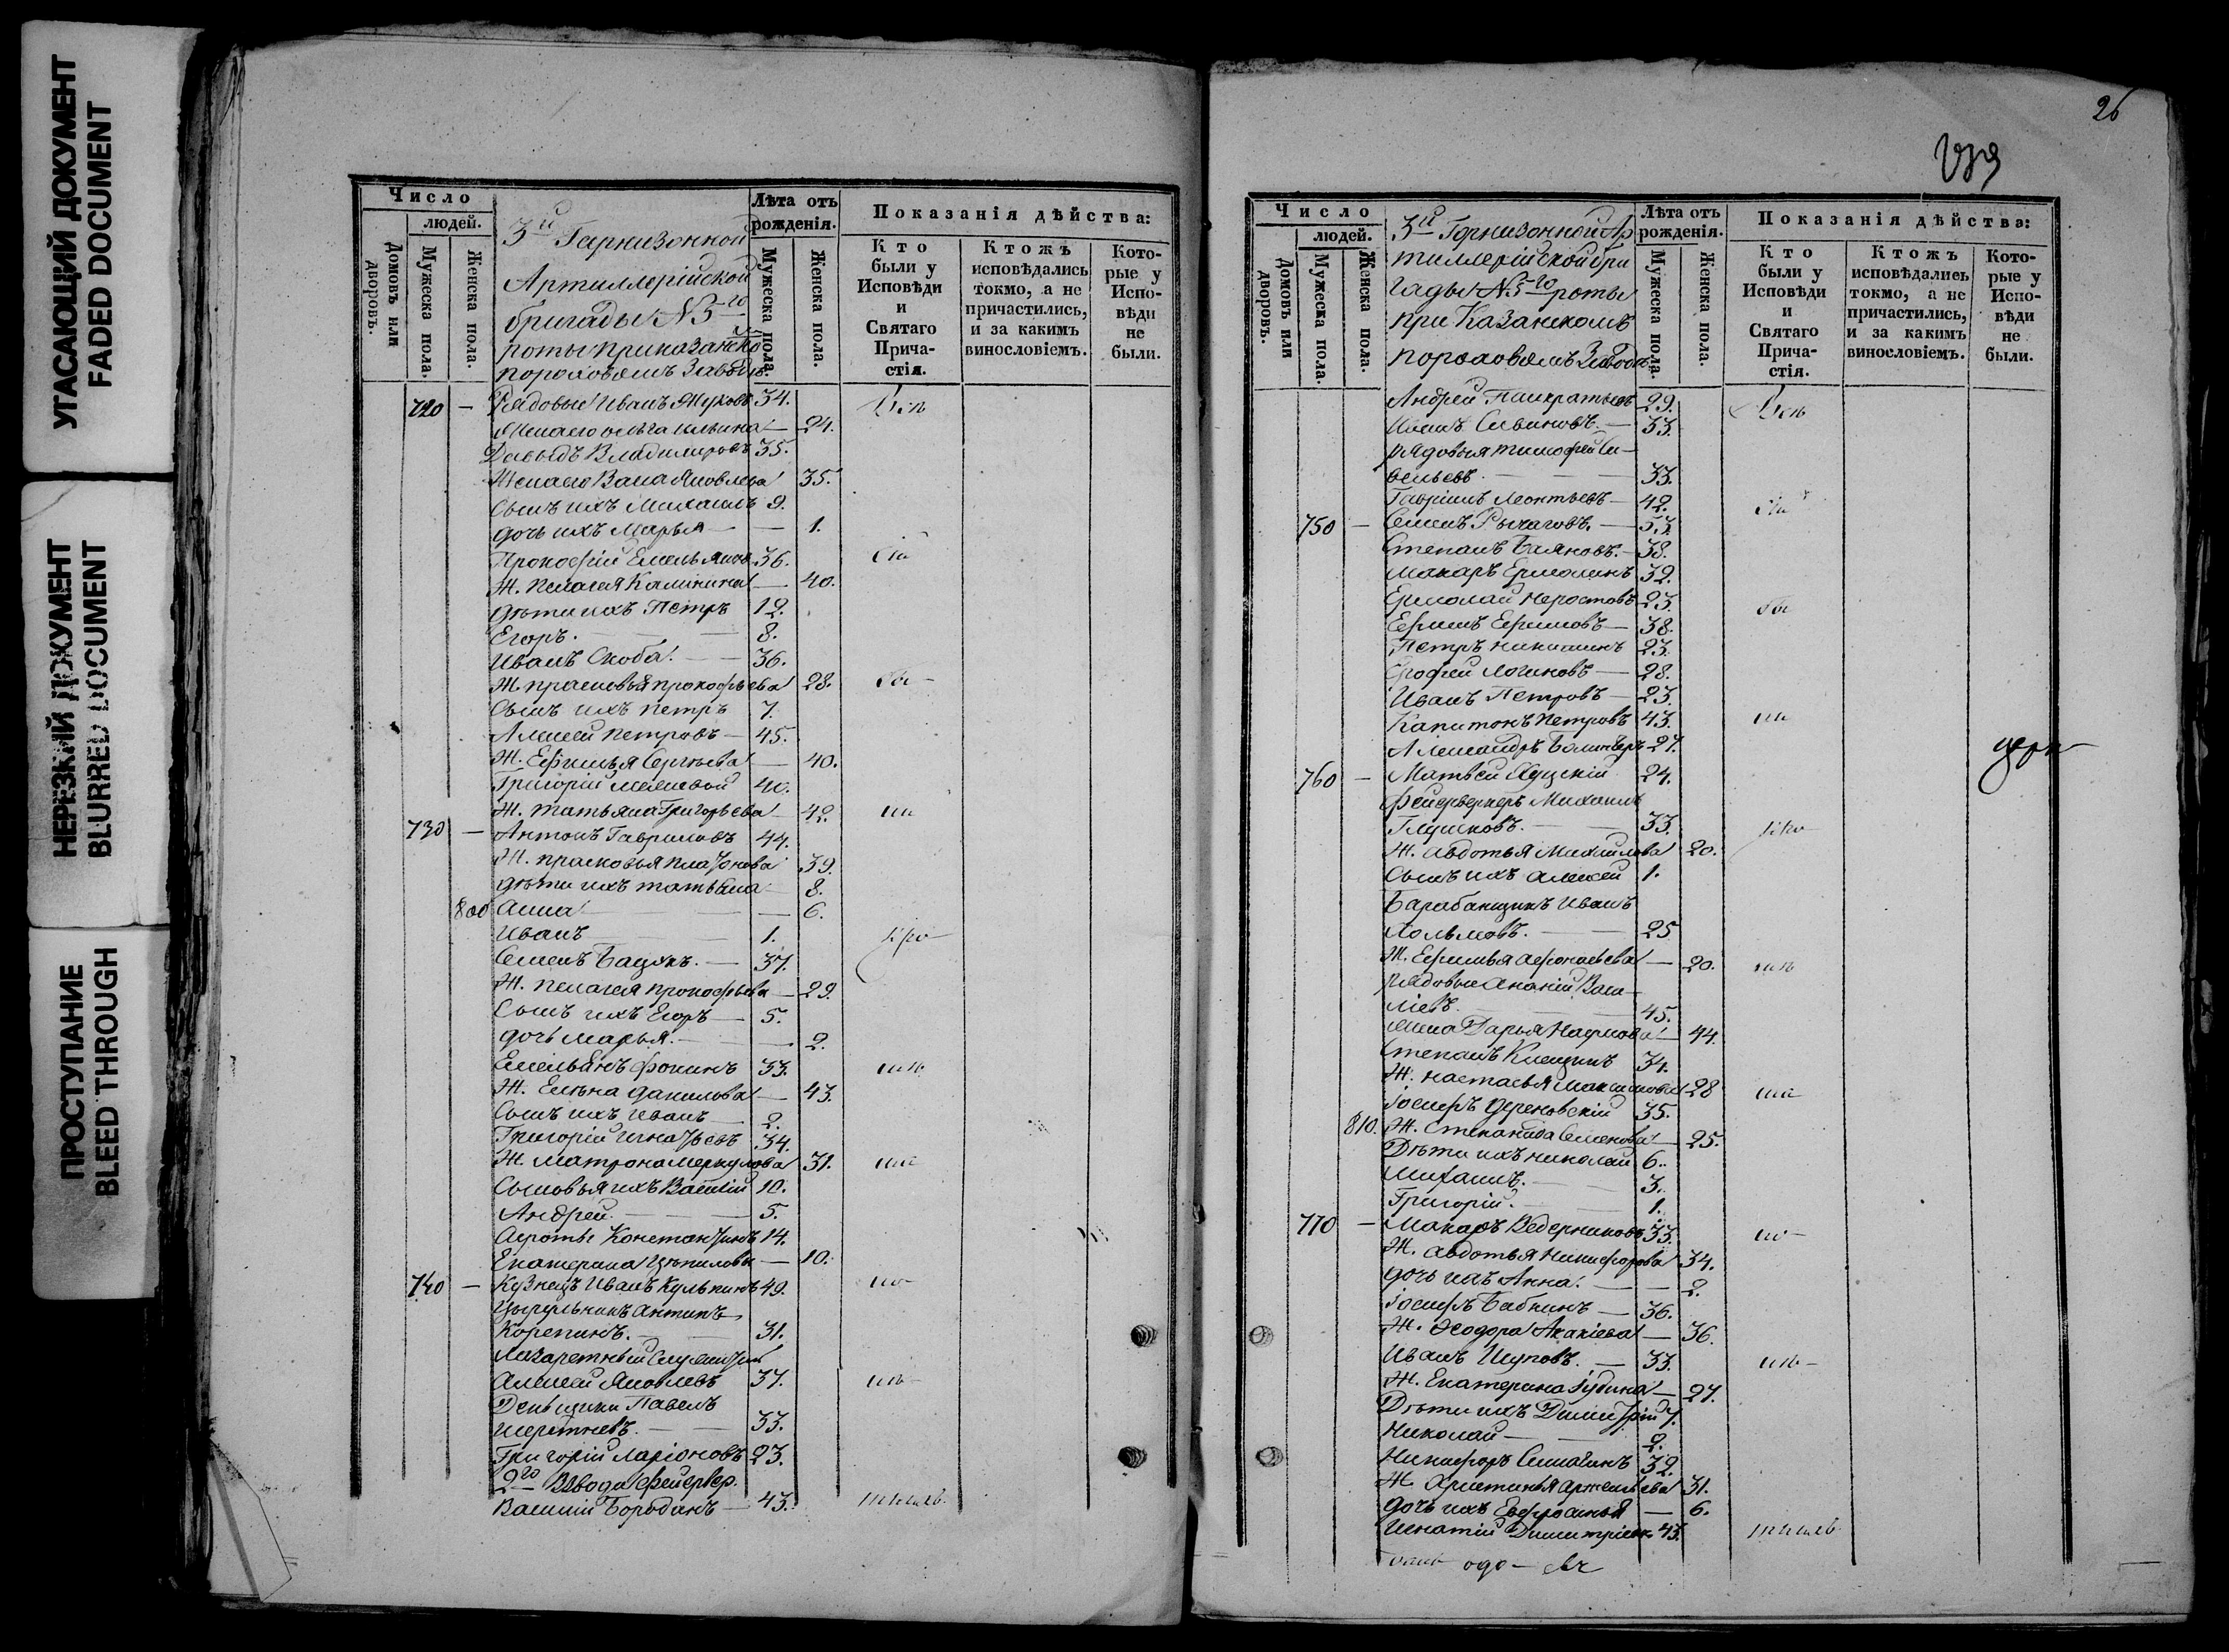 УГАСАЮЩИЙ ДОКУМЕНТ
FADED DOCUMENT
НЕРЕЗКИЙ ДОКУМЕНТ
BLURRED DOCUMENT
ПРОСТУПАНИЕ
BLEED THROUGH
Число
людей.
Домовъ или дворовъ.
Мужеска пола.
Женска пола.
3й Гарнизонной
Артиллерійской
бригады №5го
роты при Казанско
пороховомъ заводѣ.
Лѣта отъ рожденія.
Мужеска пола.
Женска пола.
Показанія дѣйства:
Кто были у Исповѣди и Святаго Прича-стія.
Ктожъ исповѣдались токмо, а не причастились, и за какимъ винословіемъ.
Кото-рые у Испо-вѣди не были.
720 — Рядовые Иванъ Жуковъ 34.
Жена его Ольга Ильина — 24.
Давыдъ Владимировъ 35.
Жена его Васа Яковлева 35.
Сынъ ихъ Михаилъ 9.
дочь ихъ Марья — 1.
Прокофій Емельянов 36.
Ж. Пелагея Калинина — 40.
дѣти ихъ Петръ 12.
Егоръ. — 8.
Иванъ Скоба. — 36.
Ж. прасковья прокофьева 28.
Сынъ ихъ петръ 7.
Алексей Петровъ — 45.
Ж. Ефимья Сергѣева — 40.
Григорій 40.
Ж. Татьяна Григорьева — 42.
730 — Антонъ Гавриловъ 44.
Ж. прасковья платонова 39.
дѣти ихъ татьяна — 8.
800 Анна — 6.
Иванъ 1.
Семенъ Бацукъ. — 37.
Ж. пелагея прокофьева — 29.
Сынъ ихъ Егоръ — 5.
дочь Марья. — 2.
Емельянъ Фокинъ 33.
Ж. Елѣна Данилова — 43.
Сынъ ихъ Иванъ 2.
Григорій Игнатьевъ 34.
Ж. Матрона Меркулова 31.
Сыновья ихъ Василій 10.
Андрей. — 5.
Сироты Константинъ 14.
Екатерина — 10.
740 — Кузнецъ Иванъ Кулькинъ 49.
Цырульникъ Антипъ
Корепинъ. — 31.
Лазаретный служитель
Алексей Яковлевъ 37.
Деньщики Павелъ
33.
Григорій Ларіоновъ 23.
2го Взвода фейервер.
Василій Бородинъ — 43.
26
Число
людей.
Домовъ или дворовъ.
Мужеска пола.
Женска пола.
3й Гарнизонной Ар
тиллерійской бри
гады №5го роты
при Казанскомъ
пороховомъ Заводѣ
Лѣта отъ рожденія.
Мужеска пола.
Женска пола.
Показанія дѣйства:
Кто были у Исповѣди и Святаго Прича-стія.
Ктожъ исповѣдались токмо, а не причастились, и за какимъ винословіемъ.
Кото-рые у Испо-вѣди не были.
Андрей Панкратьевъ 29.
Савиновъ. — 33.
рядовыя тимофей Са-
вельевъ. — 33.
Гавріилъ Леонтьевъ — 42.
750 — Семенъ Рычаговъ. — 53.
Степанъ Баяновъ. — 38.
Макаръ Ермолинъ 32.
Ермолай Неростовъ 23.
Ефимъ Ефимовъ — 38.
Петръ Никитинъ 23.
Ерофей Логиновъ — 28.
Иванъ Петровъ — 23.
Капитонъ Петровъ 43.
Александръ 27.
760 — Матвей 24.
фейерверкеръ Михаилъ
Глушковъ. — 33.
Ж. Авдотья Михайлова 20.
Сынъ ихъ Алексей 1.
Барабанщикъ Иванъ
Хольмовъ. — 25
Ж. Ефимья Афонасьева — 20.
Рядовые Ананій Васи-
ліевъ. 45.
Жена Дарья Наумова — 44.
Степанъ Клещинъ 34.
Ж. Настасья Максимова 28
Іосифъ Дереновскій 35.
810. Ж. Степанида Семенова — 25.
Дѣти ихъ Николай 6.
Михаилъ. — 3.
Григорій. — 1.
770 — Макаръ Ведерниковъ 33.
Ж. Авдотья Никифорова 34.
дочь ихъ Анна. — 2.
Іосифъ Бабкинъ — 36.
Ж. Ѳеодора Акакіева — 36.
Иванъ Шуповъ. — 33.
Ж. Екатерина Іудина — 27.
Дѣти ихъ Димитрій 7.
Николай — 2.
Никифоръ Симагинъ 32.
Ж. Христинья Артемьева 31.
дочь ихъ Евфросинья — 6.
Игнатій Димитріевъ 43.